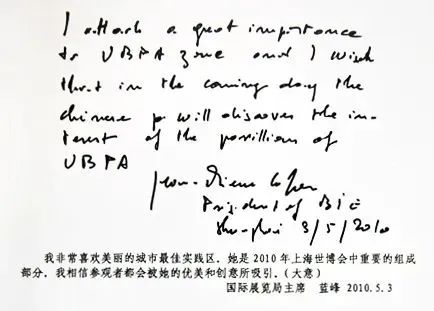 I attach a great importance
to UBPA zone and I wish
that in the coming day the
chinese p will discover the in-
terest of the pavillions of
UBPA
Jean-Pierre Lafon
President of BIE
Shanghai 3/5/2010
我非常喜欢美丽的城市最佳实践区，她是2010年上海世博会中重要的组成
部分，我相信参观者都会被她的优美和创意所吸引。(大意)
国际展览局主席 蓝峰 2010.5.3